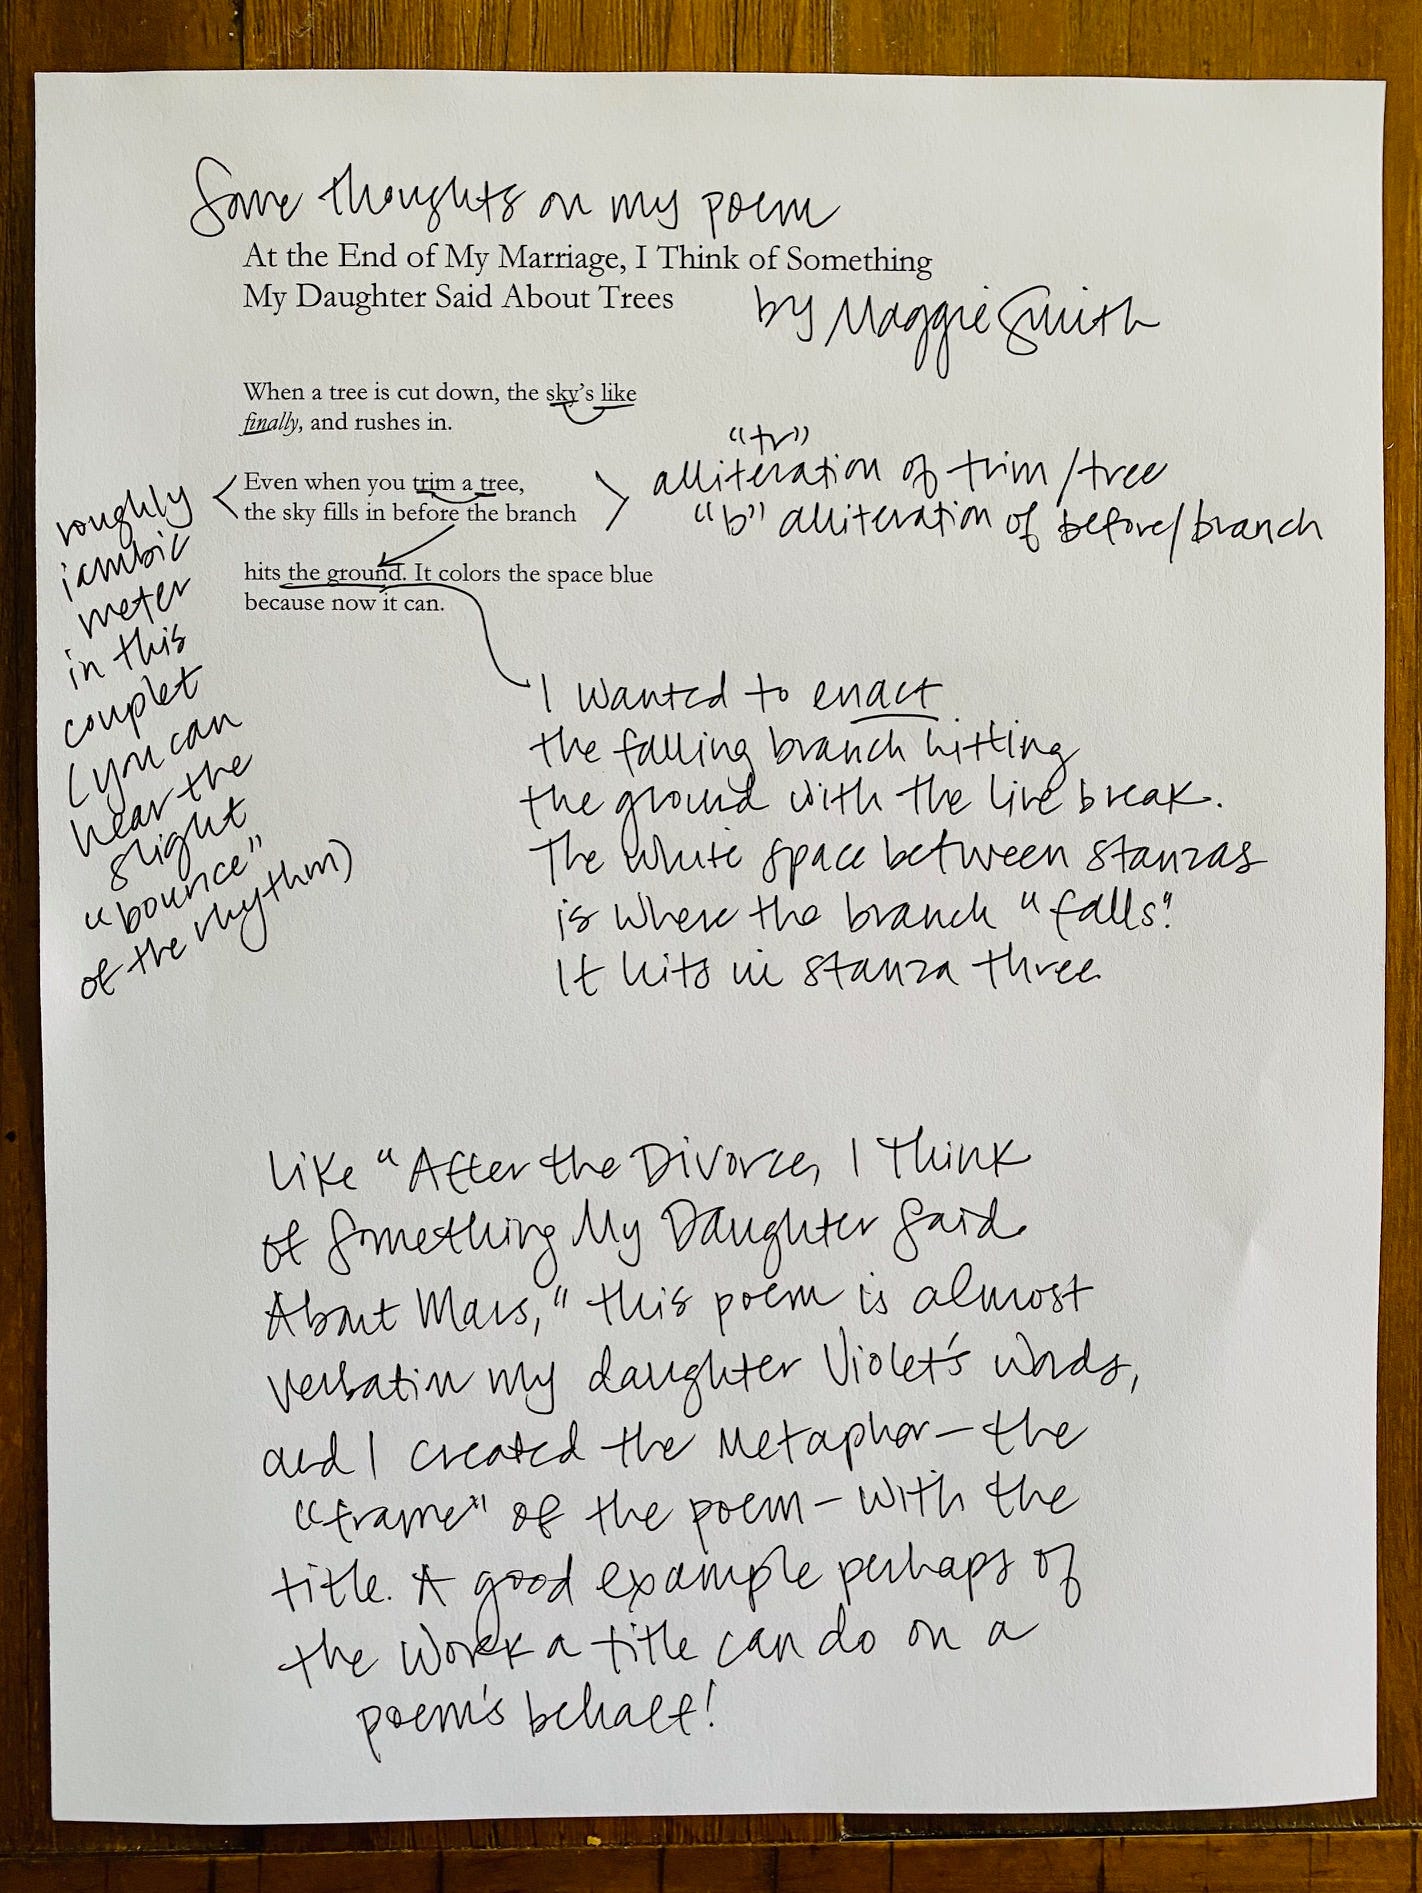 Some thoughts on my poem
At the End of My Marriage, I Think of Something
My Daughter Said About Trees
by Maggie Smith
When a tree is cut down, the sky's like
finally, and rushes in.
Even when you trim a tree,
the sky fills in before the branch
hits the ground. It colors the space blue
because now it can.
"tr"
alliteration of trim/tree
"b" alliteration of before/branch
roughly
iambic
meter
in this
couplet
(you can
hear the
slight
"bounce"
of the rhythm)
I wanted to enact
the falling branch hitting
the ground with the line break.
The white space between stanzas
is where the branch "falls."
It hits in stanza three.
Like "After the Divorce, I Think
of Something My Daughter Said
About Mars," this poem is almost
verbatim my daughter Violet's words,
and I created the metaphor—the
"frame" of the poem—with the
title. A good example perhaps of
the work a title can do on a
poem's behalf!